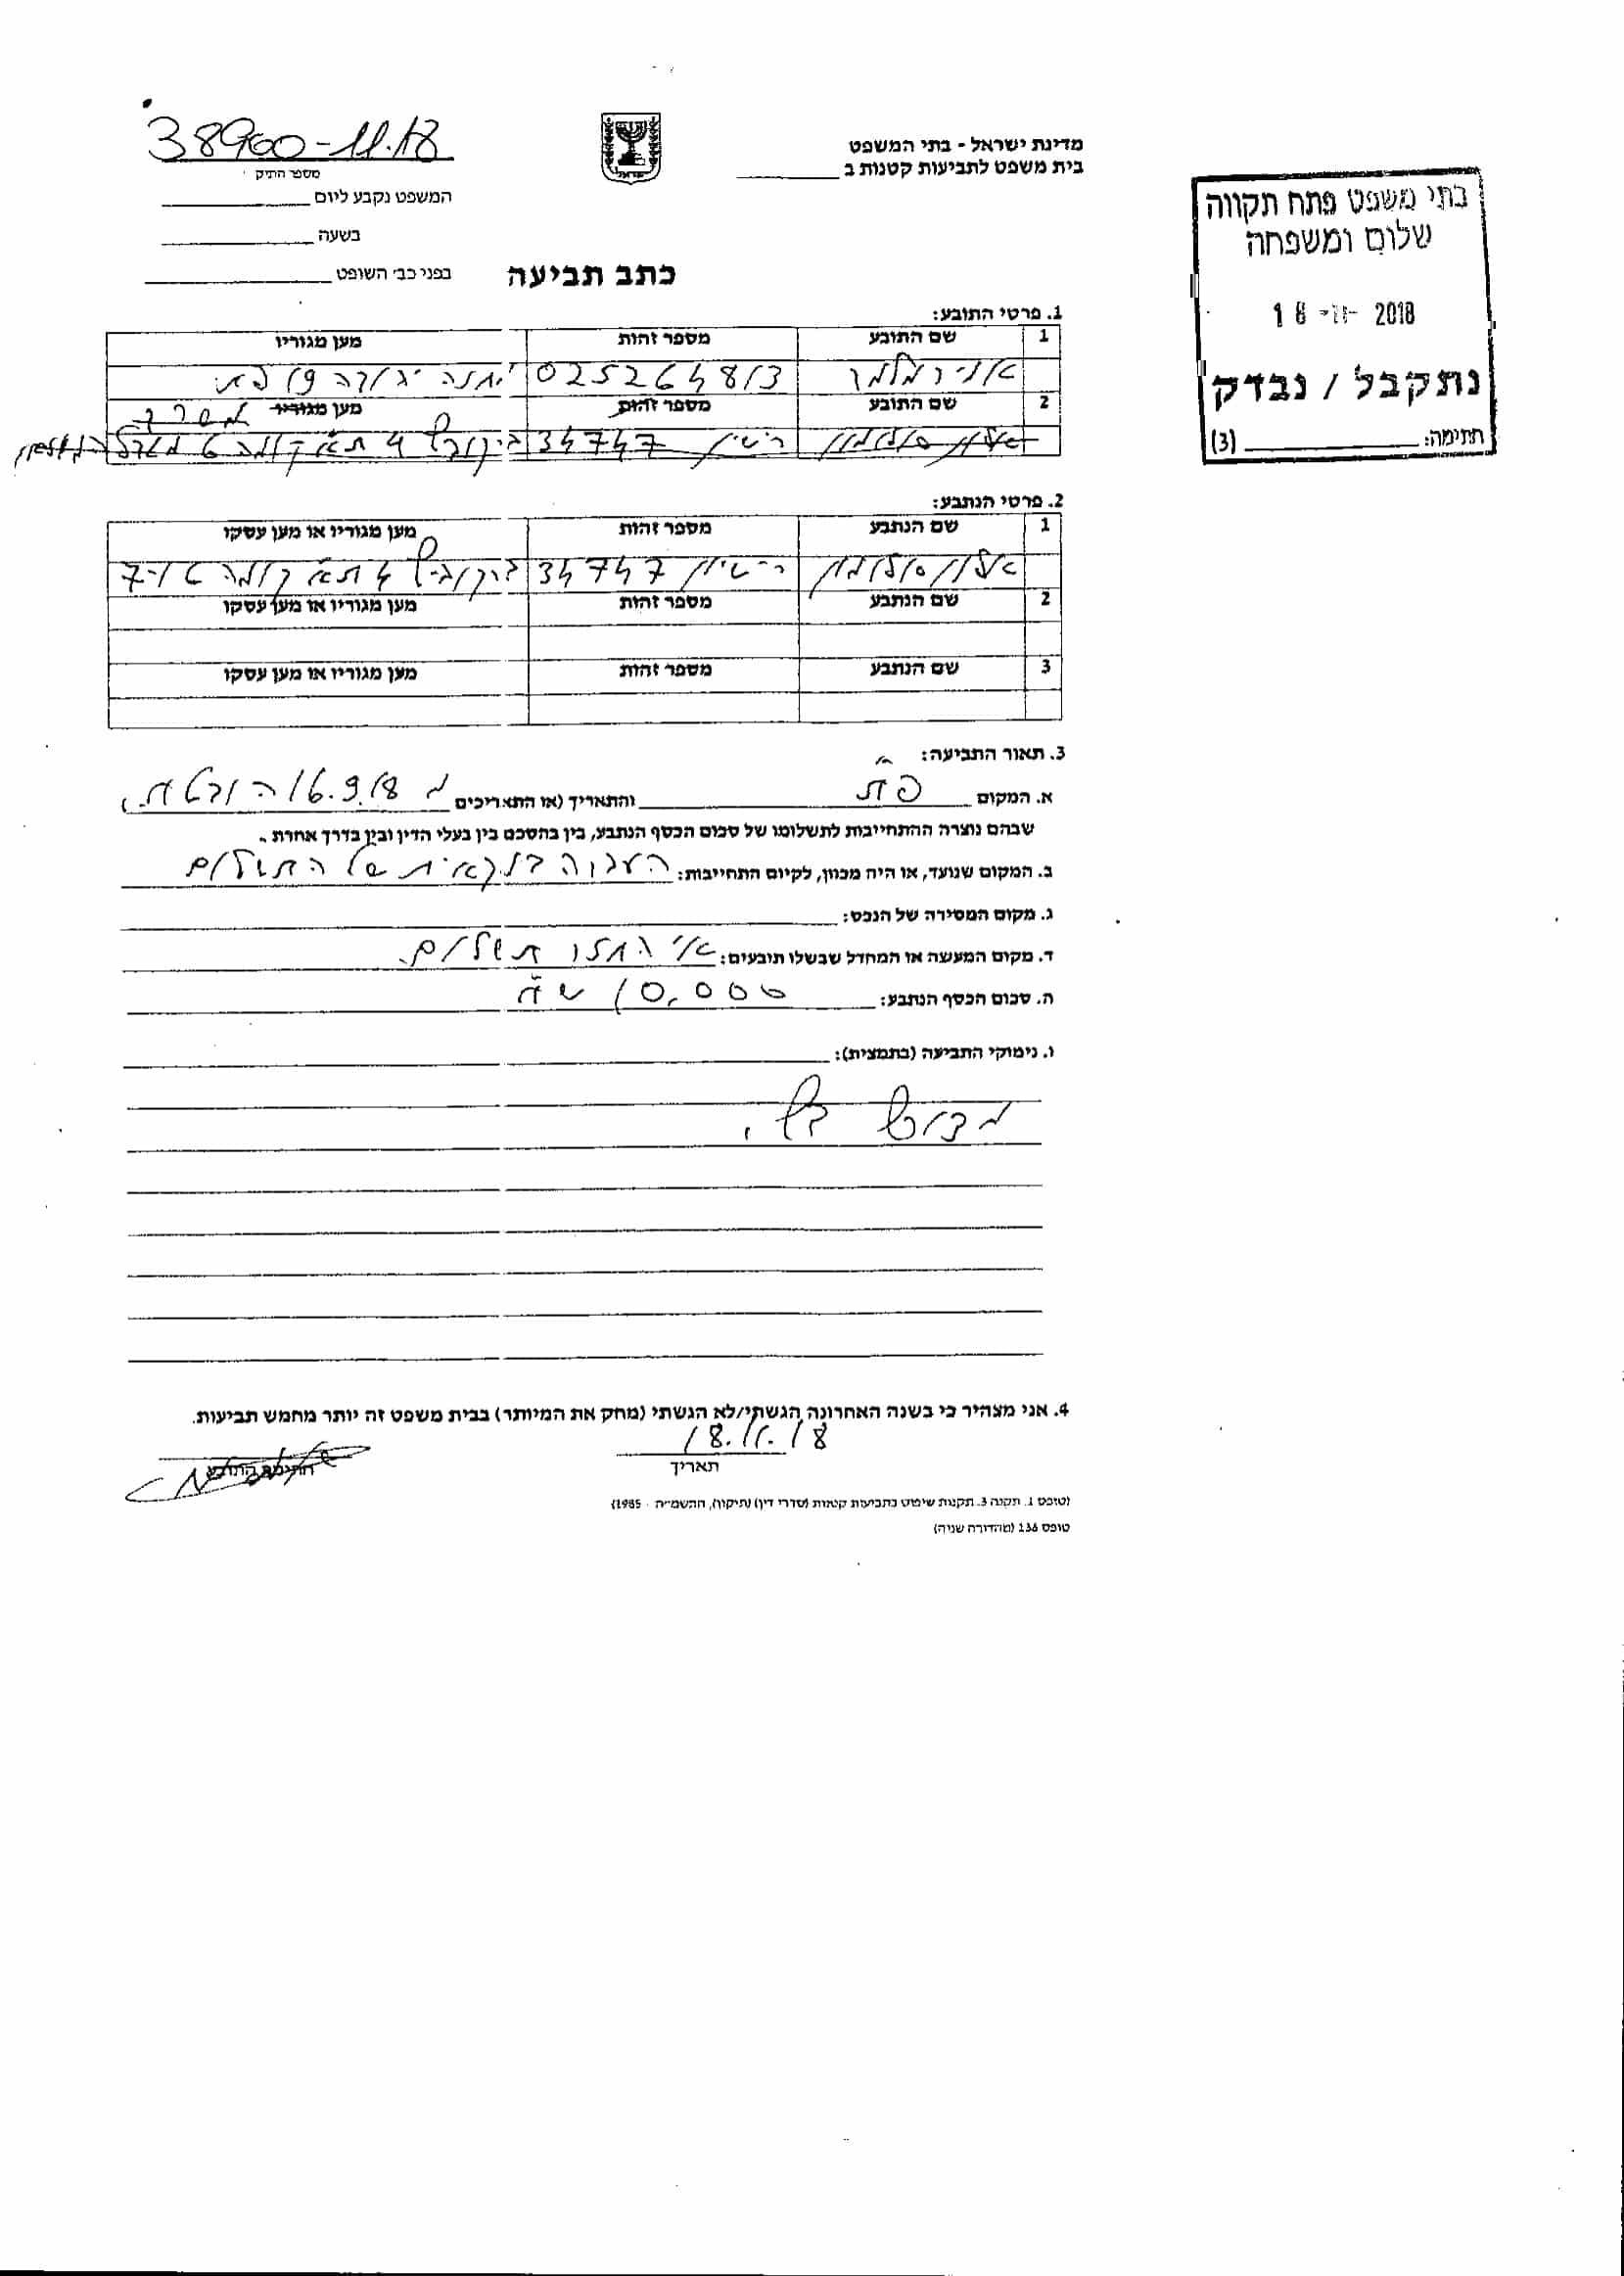 38960-11.18
מספר התיק
מדינת ישראל - בתי המשפט
בית משפט לתביעות קטנות ב
המשפט נקבע ליום
בשעה
בפני כב' השופט
כתב תביעה
בתי משפט פתח תקווה
שלום ומשפחה
18 -11- 2018
נתקבל / נבדק
חתימה: (3)
1. פרטי התובע:
1 שם התובע מספר זהות מען מגוריו
025264813
2 שם התובע מספר זהות מען מגוריו
רשיון 34747
2. פרטי הנתבע:
1 שם הנתבע מספר זהות מען מגוריו או מען עסקו
רשיון 34747
2 שם הנתבע מספר זהות מען מגוריו או מען עסקו
3 שם הנתבע מספר זהות מען מגוריו או מען עסקו
3. תאור התביעה:
א. המקום פ"ת והתאריך (או התאריכים 16.9.18
שבהם נוצרה ההתחייבות לתשלומו של סכום הכסף הנתבע, בין בהסכם בין בעלי הדין ובין בדרך אחרת.
ב. המקום שנועד, או היה מכוון, לקיום התחייבות: העברה בנקאית של התשלום
ג. מקום המסירה של הנכס:
ד. מקום המעשה או המחדל שבשלו תובעים: אי החזר תשלום.
ה. סכום הכסף הנתבע: 10,000 ש"ח
ו. נימוקי התביעה (בתמצית):
מצורף דף.
4. אני מצהיר כי בשנה האחרונה הגשתי/לא הגשתי (מחק את המיותר) בבית משפט זה יותר מחמש תביעות.
18.11.18
תאריך
חתימת התובע
(טופס 1. תקנה 3. תקנות שיפוט בתביעות קטנות (סדרי דין) (תיקון), התשמ"ה - 1985)
טופס 136 (מהדורה שניה)